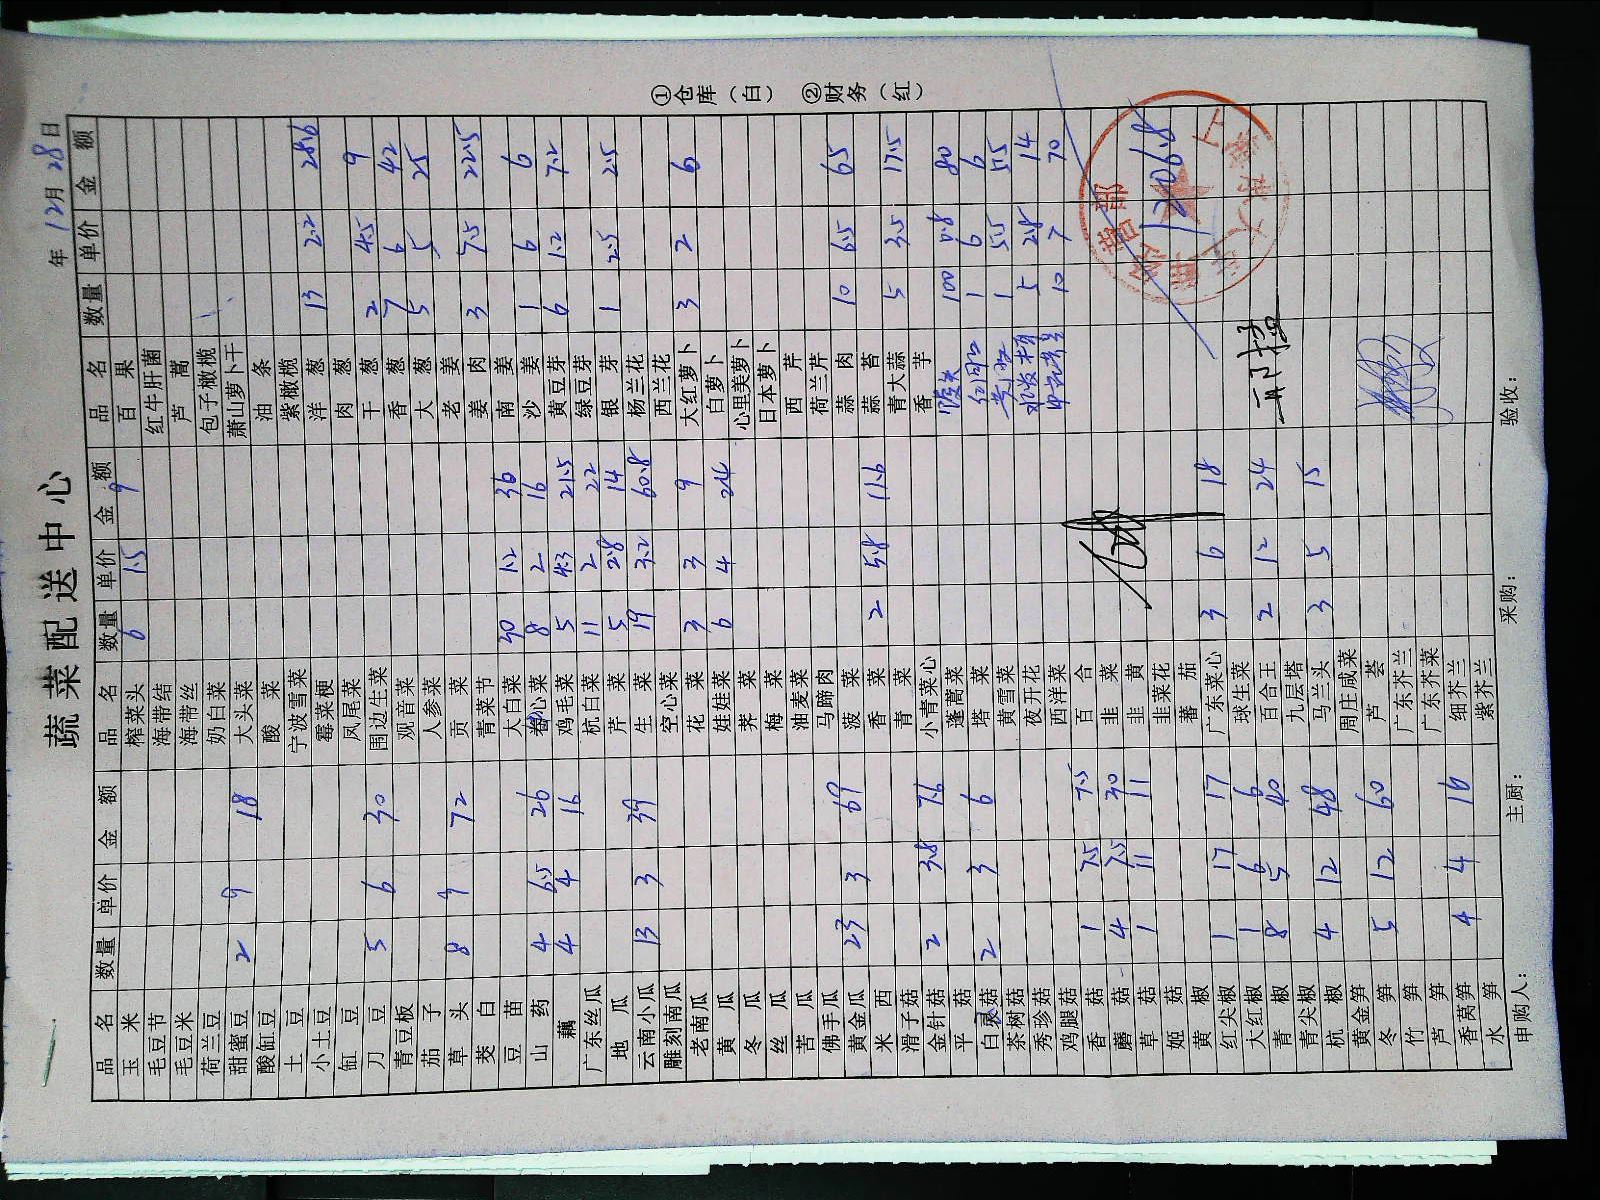 蔬菜配送中心
年 12月 28日
品名 数量 单价 金额 品名 数量 单价 金额 品名 数量 单价 金额
玉米 榨菜头 6 1.5 9 百果
毛豆节 海带结 红牛肝菌
毛豆米 海带丝 芦蒿
荷兰豆 奶白菜 包子橄榄
甜蜜豆 2 9 18 大头菜 萧山萝卜干
酸缸豆 酸菜 油条
土豆 宁波雪菜 紫橄榄
小土豆 霉菜梗 洋葱 13 2.2 28.6
缸豆 凤尾菜 肉葱
刀豆 5 6 30 围边生菜 干葱 2 4.5 9
青豆板 观音菜 香葱 7 6 42
茄子 人参菜 大葱 5 5 25
草头 8 9 72 贡菜 老姜
茭白 青菜节 姜肉 3 7.5 22.5
豆苗 大白菜 30 1.2 36 南姜
山药 4 6.5 26 卷心菜 8 2 16 沙姜 1 6 6
藕 4 4 16 鸡毛菜 5 4.3 21.5 黄豆芽 6 1.2 7.2
广东丝瓜 杭白菜 11 2 22 绿豆芽
地瓜 芹菜 5 2.8 14 银芽 1 2.5 2.5
云南小瓜 13 3 39 生菜 19 3.2 60.8 杨兰花
雕刻南瓜 空心菜 西兰花
老南瓜 花菜 3 3 9 大红萝卜 3 2 6
黄瓜 娃娃菜 6 4 24 白萝卜
冬瓜 荠菜 心里美萝卜
丝瓜 梅菜 日本萝卜
苦瓜 油麦菜 西芹
佛手瓜 马蹄肉 荷兰芹
黄金瓜 23 3 69 菠菜 蒜肉 10 6.5 65
米西 香菜 2 5.8 11.6 蒜苔
滑子菇 青菜 青大蒜 5 3.5 17.5
金针菇 2 3.8 7.6 小青菜心 香芋
平菇 蓬蒿菜 馒头 100 0.8 80
白灵菇 2 3 6 塔菜 1 6 6
茶树菇 黄雪菜 1 5.5 5.5
秀珍菇 夜开花 5 2.8 14
鸡腿菇 西洋菜 10 7 70
香菇 1 7.5 7.5 百合
磨菇 4 7.5 30 韭菜
草菇 1 11 11 韭黄
姬菇 韭菜花 1206.8
黄椒 蕃茄
红尖椒 1 17 17 广东菜心 3 6 18
大红椒 1 6 6 球生菜
青椒 8 5 40 百合王 2 12 24
青尖椒 九层塔
杭椒 4 12 48 马兰头 3 5 15
黄金笋 周庄咸菜
冬笋 5 12 60 芦荟
竹笋 广东芥兰
芦笋 广东芥菜
香莴笋 4 4 16 细芥兰
水笋 紫芥兰
申购人: 主厨: 采购: 验收:
①仓库(白) ②财务(红)